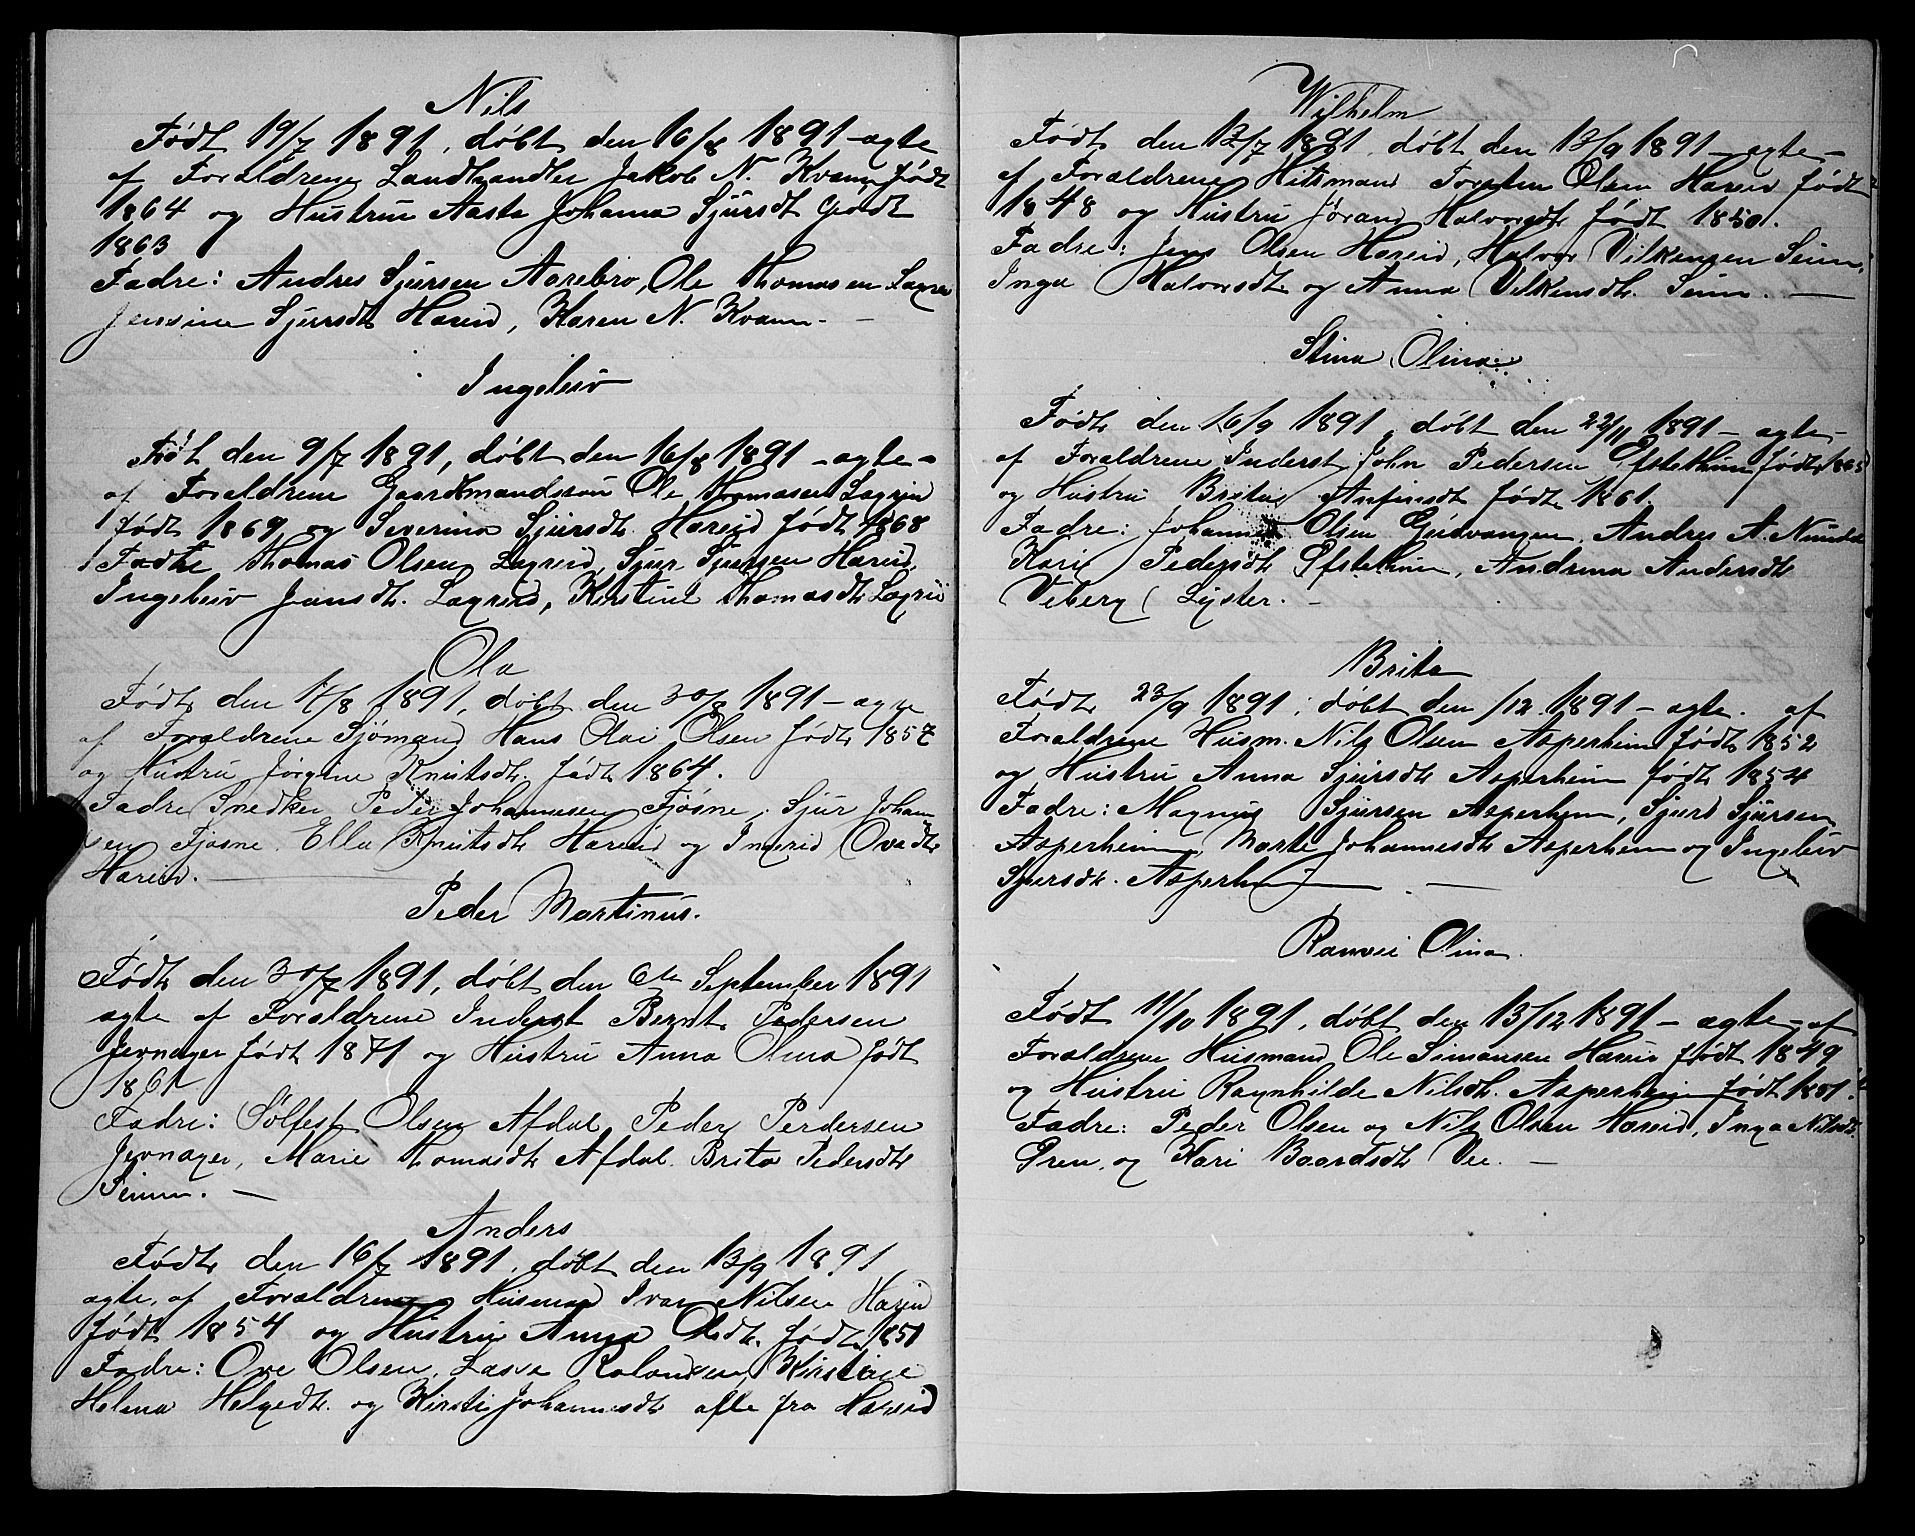 Nils
Født 19/7 1891, døbt den 16/8 1891 – ægte
af Forældrene Landhandler Jakob N. Kvam født
1864 og Hustru Aasta Johana Sjursdt født
1863
Fadre: Andres Sjursen Aarebro, Ole Thomasen
Jensine Sjursdt Hareid, Karen N. Kvam –
Ingeleiv
Født den 9/7 1891, døbt den 16/8 1891 – ægte –
af Forældrene Gaardmandssøn Ole Thomasen Lægrei
født 1869 og Severina Sjursdt. Hareid født 1868
Thomas Olsen Lægreid, Sjur Sjursen Hareid,
Ingeleiv Jansdt. Lægreid, Kirstine Thomasdt Lægrei
Ola
Født den /8 1891, døbt den 30/8 1891 – ægte
af Forældrene Sjømand Hans Olai Olsen født 1857
og Hustru Jørgine Knutsdt. født 1864.
Fadre Snedker Peder Johannesen Fjøsne, Sjur Johan
sen Fjøsne, Ella Knutsdt Hareid og Ingrid Ovedt
Hareid. –
Peder Martinus.
Født den 30/7 1891, døbt den 6te September 1891
ægte af Forældrene Inderst Bernt Pedersen
Jernager født 1871 og Hustru Anna Olina født
1861
Fadre: Sølfest Olsen Afdal Peder Perdersen
Jernager, Marie Thomasdt Afdal. Brita Pedersdt
Seim. –
Anders
Født den 16/7 1891, døbt den 13/9 1891
ægte, af Forældrene Husmand Ivar Nilsen Hareid
født 1854 og Hustru Anna Olsdt. født 1851
Fadre: Ove Olsen, Lasse Rolandsen, Kirstine
Helena Helgedt. og Kirsti Johannesdt alle fra Hareid
Wilhelm
Født den 12/7 1891, døbt den 13/9 1891 – ægte –
af Forældrene Torsten Olsen Hareid født
1848 og Hustru Jørand Halvorsdt. født 1850.
Fadre: Jens Olsen Hareid, Halvor Vilkensen Seim
Inga Halvorsdt og Anna Vilkensdt. Seim. –
Stina Olina
Født den 16/9 1891, døbt den 22/11 1891 – ægte –
af Forældrene Inderst John Pedersen Ofstethun født
og Hustru Britha Anfinsdt født 1861.
Fadre: Johannes Olsen Gudvangen, Andres A.
Kari Pedersdt Ofstethun, Andrina Andersdt
Veberg (Lyster. –
Brita
Født 23/9 1891, døbt den /12 1891 – ægte af
Forældrene Husm. Nils Olsen Asperheim født 1852
og Hustru Anna Sjursdt Asperheim født 1854
Fadre: Magnus Sjursen Asperheim, Sjurd Sjursen
Asperheim, Marte Johannesdt Asperheim og Ingeleiv
Sjursdt. Asperheim –
Ranvei Olina
Født 11/10 1891, døbt den 13/12 1891 – ægte – af
Forældrene Husmand Ole Simonsen Hareid født 1849
og Hustru Ragnhilde Nilsdt. Asperheim født
Fadre: Peder Olsen og Nils Olsen Hareid, Inga Nilsdt.
Gren, og Kari Baardsdt Vee. –